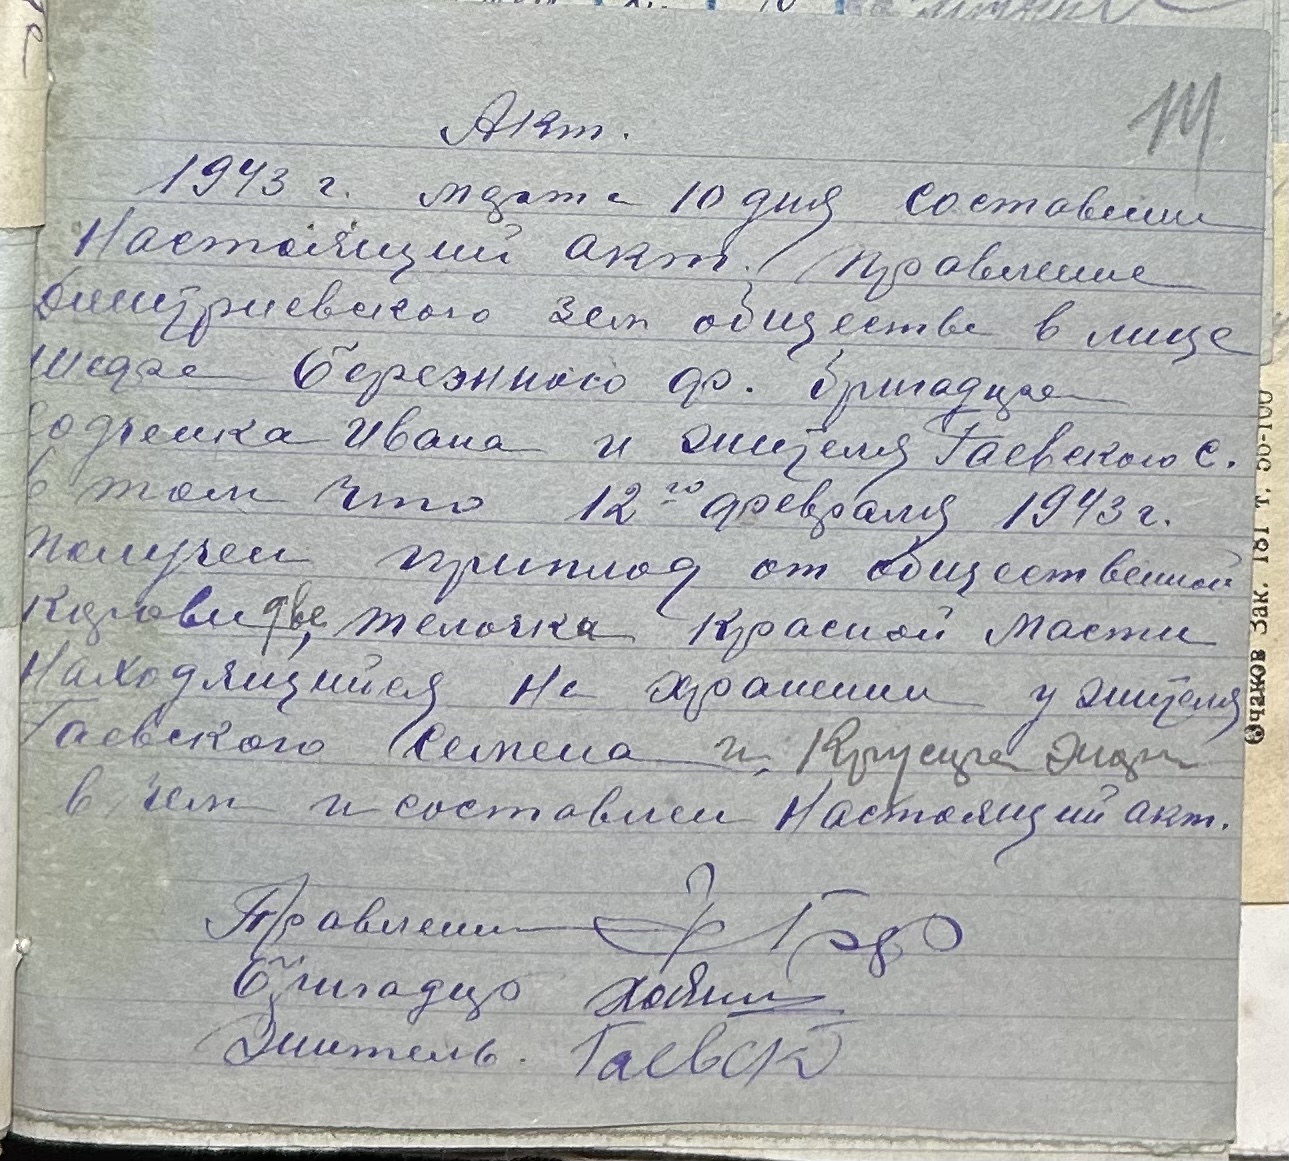 Акт.
1943 г. марта 10 дня составили
Настоящий акт. Правление
Дмитриевского Зем общества в лице
Бережного ф. бригадира
Ивана и жителя Гаевского С.
в том что 12го февраля 1943 г.
получен приплод от общественной
корови две, телочка Красной масти
Находящийся на хранении у жителя
Гаевского Семена и
в чем и составлен Настоящий акт.
Правлени
Бригадир
Житель. Гаевск
Очаков Зак. 181 т. 50-100